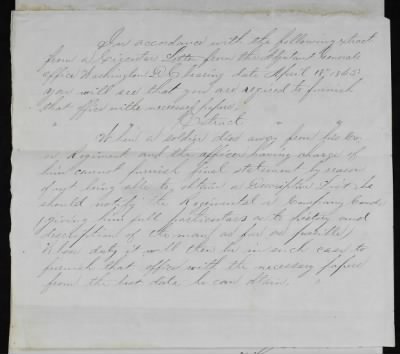 In accordance with the following extract
from a Circular Letter from the Adjutant Generals
office Washington D.C. bearing date April 18" 1865
you will see that you are required to furnish
that office withe necessary papers.
" Extract " "
When a soldier dies away from his Co.
or Regiment and the officer having charge of
him cannot furnish final statement by reason
of not being able to obtain a Descriptive List, he
should notify the Regimental or Company Comdr
giving him full particulars as to history and
description of the man as far as possible
duty it will then be in such case to
furnish that office with the necessary papers
from the best data he can obtain. "